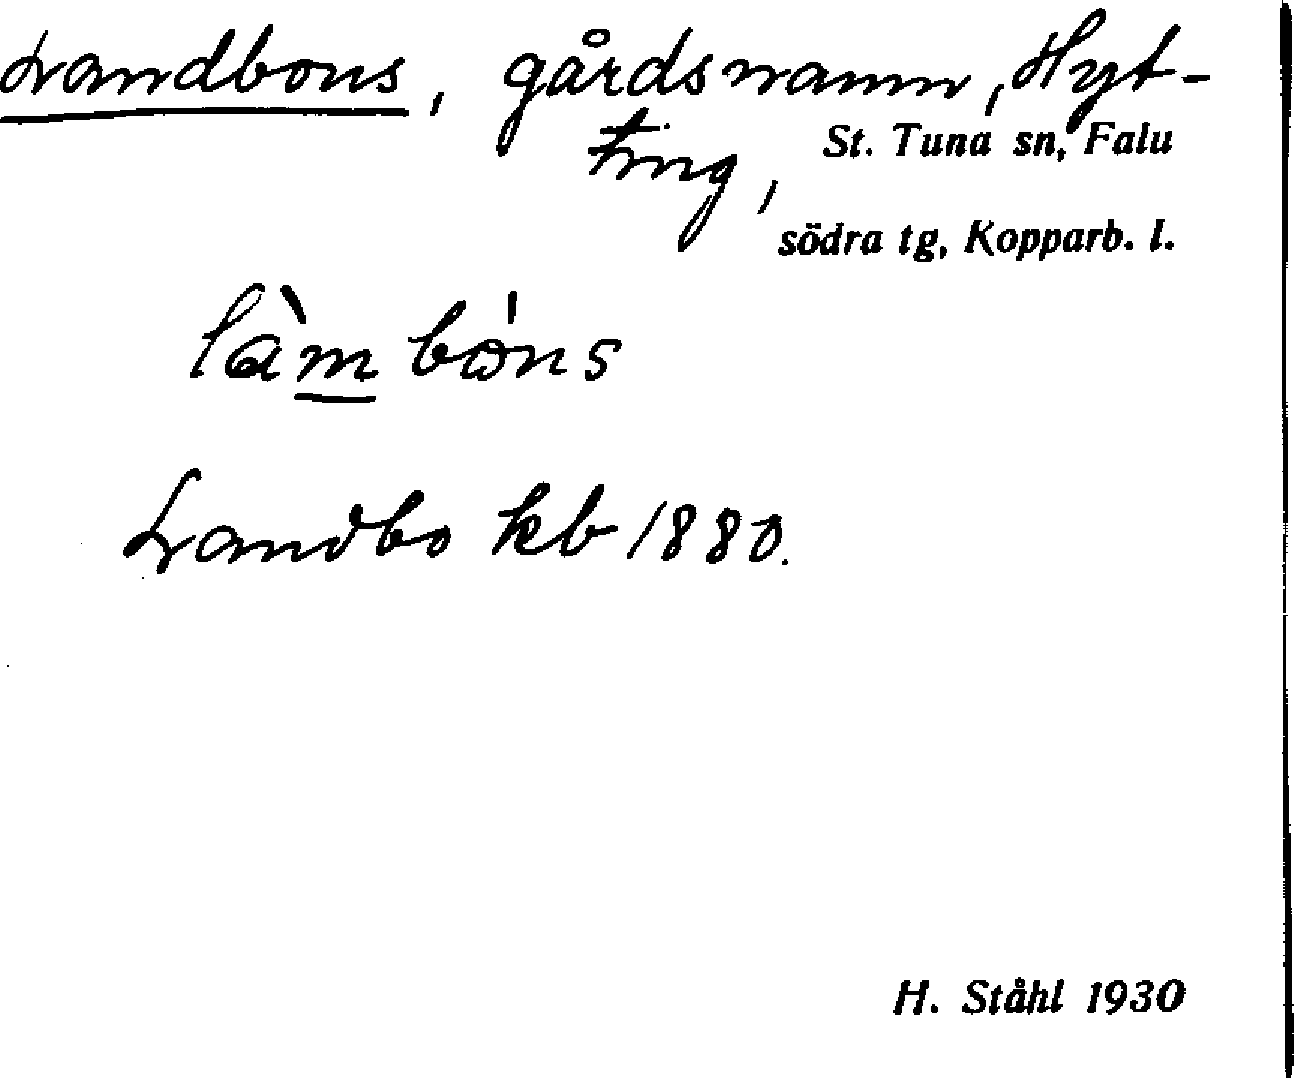 Landbons, gårdsnamn, Hyt-
ting, St. Tuna sn, Falu
södra tg, Kopparb. l.
làmbóns
Landbo kb 1880.
H. Ståhl 1930